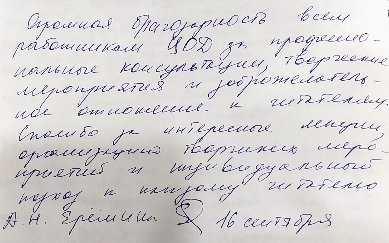 Огромная благодарность всем
работникам ЦОД за професси-
нальные консультации, творческие
мероприятия и доброжелатель-
ное отношение к читателям.
Спасибо за интересные лекции,
организацию творческих меро-
приятий и индивидуальный
подход к каждому читателю
А.Н. Ерёмина 16 сентября